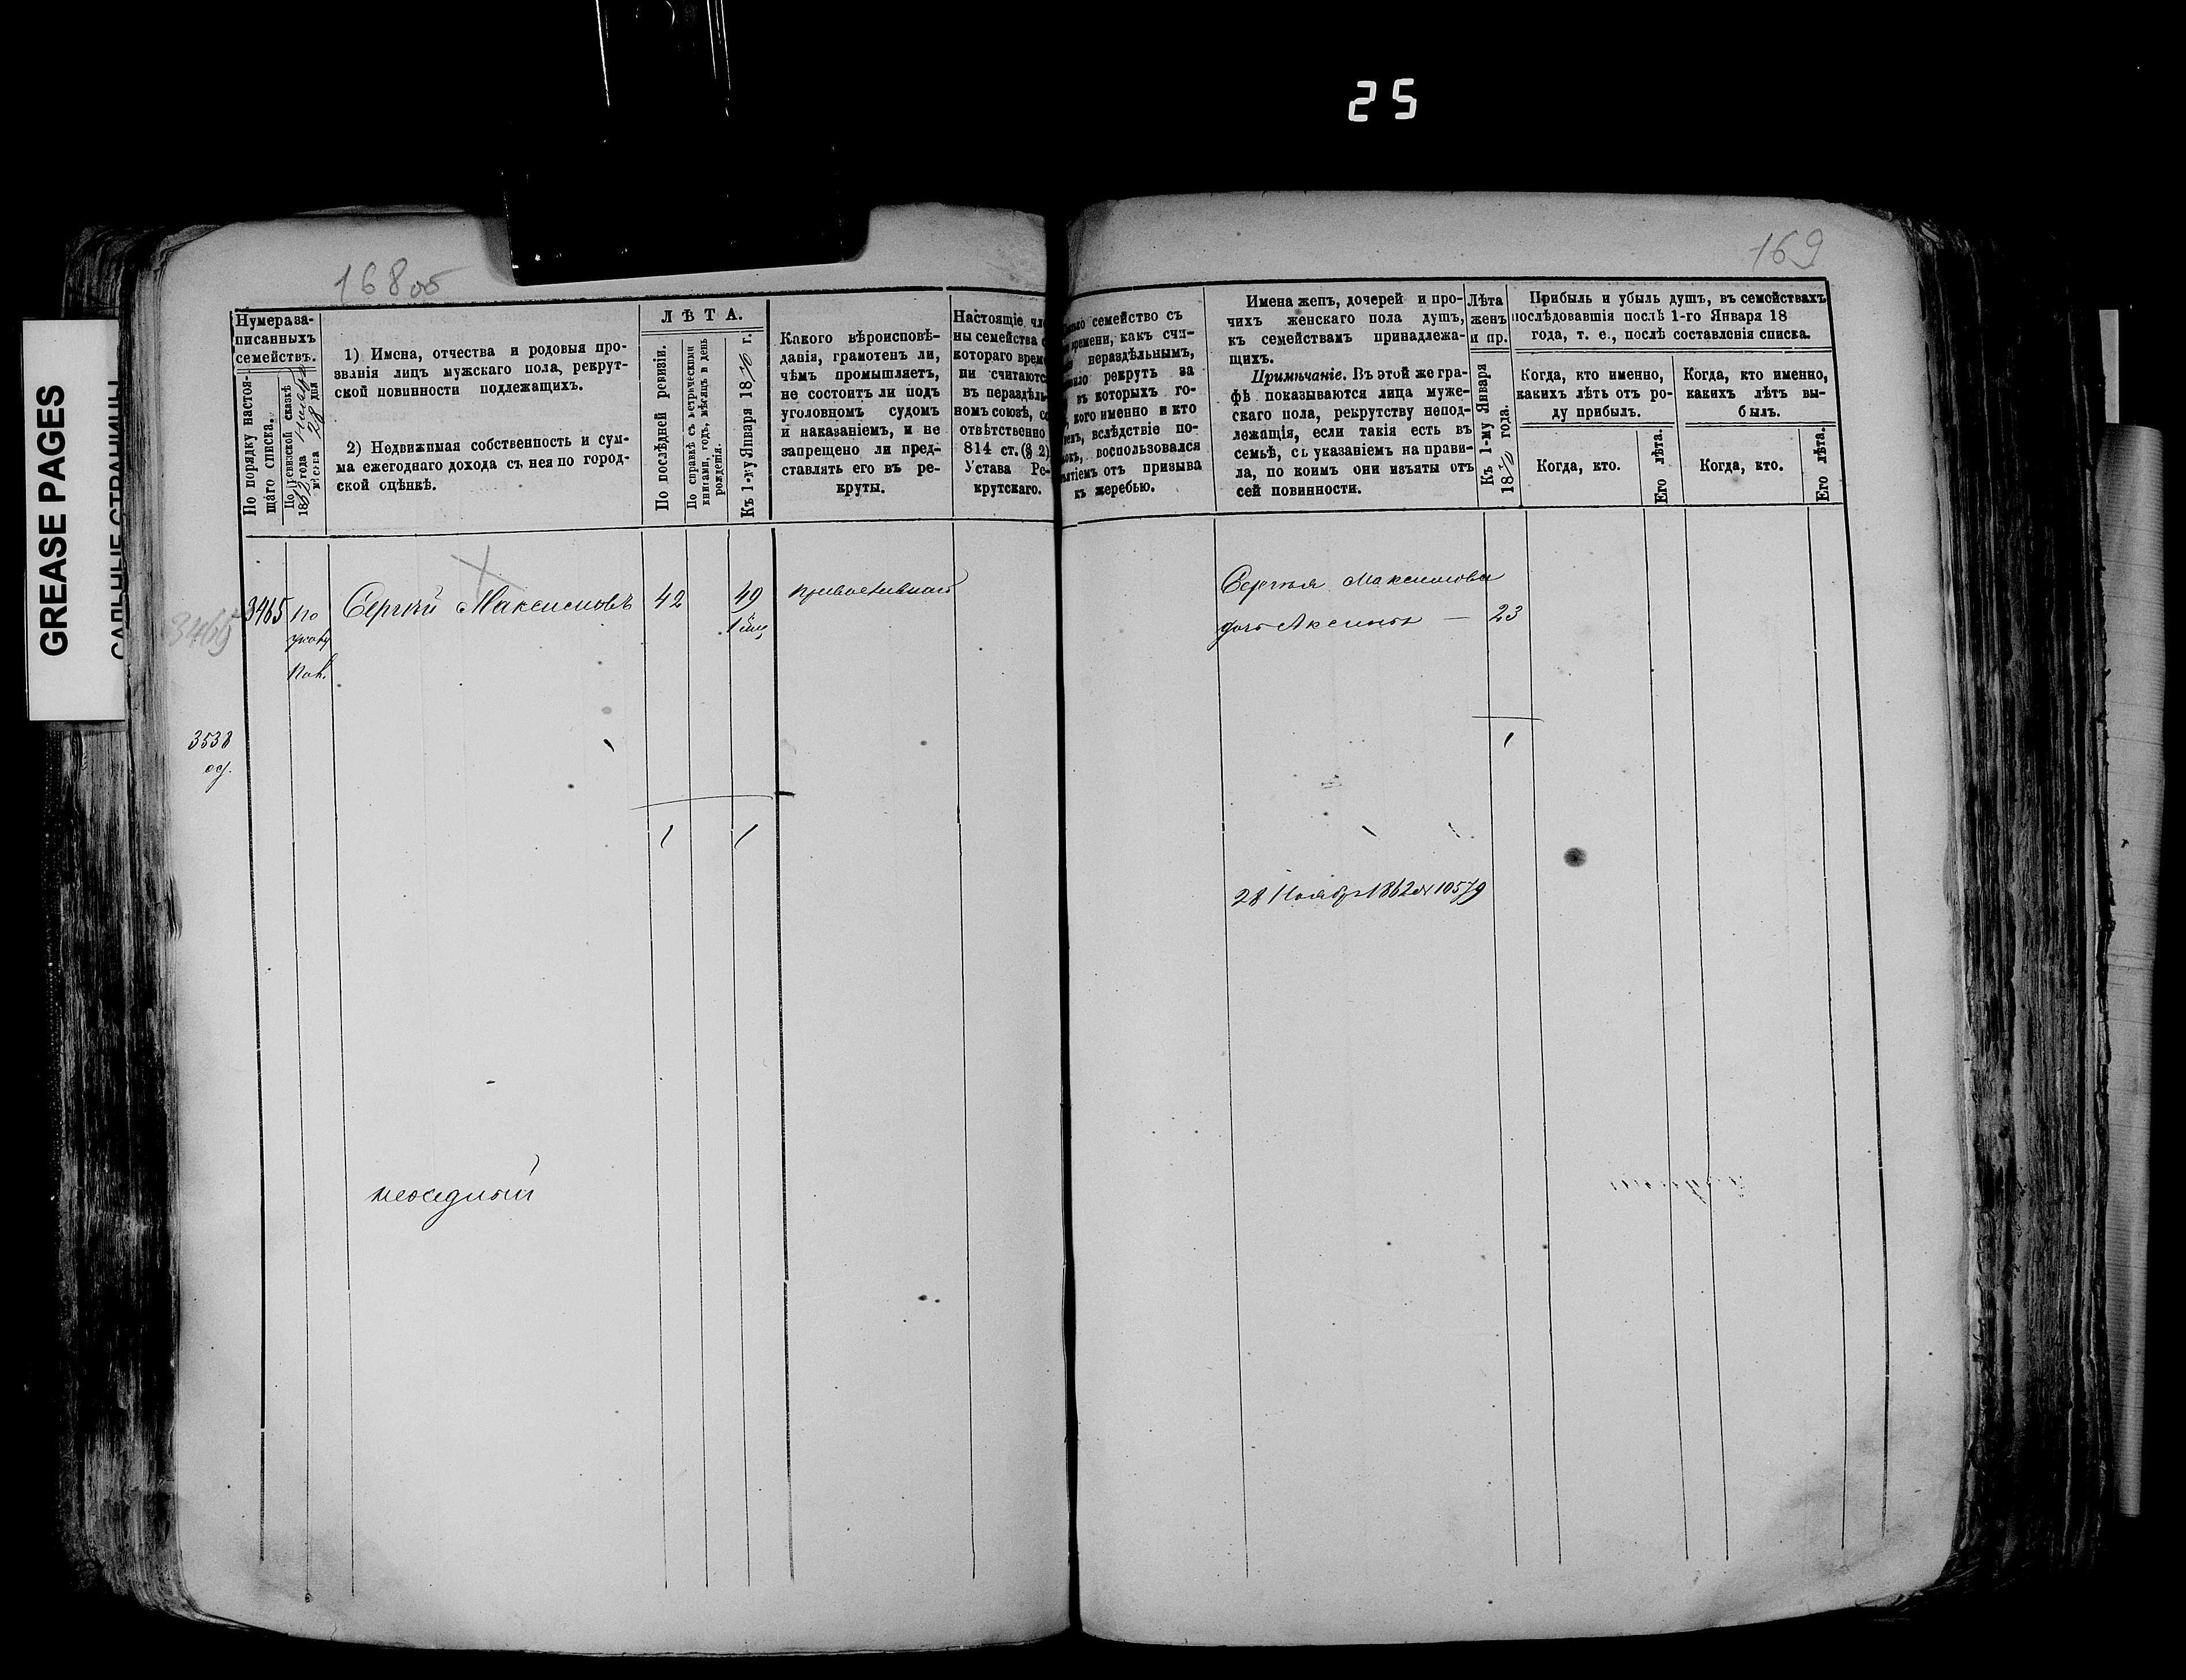 25
GREASE PAGES
САЛЬНЫЕ СТРАНИЦЫ
168 об
Нумера за-
писанныхъ
семействъ.
По порядку настоя-
щаго списка.
По ревизской сказкѣ
года
мѣсяца 28 дня
1) Имена, отчества и родовыя про-
званія лицъ мужскаго пола, рекрут-
ской повинности подлежащихъ.
2) Недвижимая собственность и сум-
ма ежегоднаго дохода съ нея по город-
ской оцѣнкѣ.
ЛѢТА.
По послѣдней ревизіи.
По справкѣ съ метрическими
книгами, годъ, мѣсяцъ и день
рожденія.
Къ 1-му Января 1870 г.
Какого вѣроисповѣ-
данія, грамотенъ ли,
чѣмъ промышляетъ,
не состоитъ ли подъ
уголовномъ судомъ
и наказаніемъ, и не
запрещено ли пред-
ставлять его въ ре-
круты.
Настоящіе чле
ны семейства с
котораго време
ни считаютс
въ нераздѣль
номъ союзѣ, со
отвѣтственно
814 ст. (§ 2)
Устава Ре-
крутскаго.
3465 По
Сергѣй Максимовъ
42
49
православный
3465
3538
неоседлый
169
семейство съ
времени, какъ счи-
нераздѣльнымъ,
рекрутъ за
въ которыхъ го-
кого именно и кто
вслѣдствіе по-
воспользовался
изъятіемъ отъ призыва
къ жеребью.
Имена женъ, дочерей и про-
чихъ женскаго пола душъ,
къ семействамъ принадлежа-
щихъ.
Примѣчаніе. Въ этой же гра-
фѣ показываются лица муже-
скаго пола, рекрутству непод-
лежащія, если такія есть въ
семьѣ, съ указаніемъ на прави-
ла, по коимъ они изъяты отъ
сей повинности.
Лѣта
женъ
и пр.
Къ 1-му Января
1870 года.
Прибыль и убыль душъ, въ семействахъ
послѣдовавшія послѣ 1-го Января 18
года, т. е., послѣ составленія списка.
Когда, кто именно,
какихъ лѣтъ отъ ро-
ду прибылъ.
Когда, кто.
Его лѣта.
Когда, кто именно,
какихъ лѣтъ вы-
былъ.
Когда, кто.
Его лѣта.
Сергѣя Максимова
дочь Аксинья — 23
1
28 Ноября 1862 № 10579